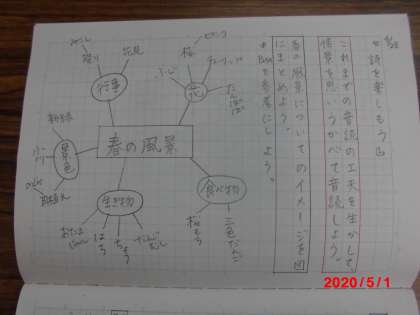 5/1
詩を楽しもう
これまでの音読の工夫を生かして、
情景を思いうかべて音読しよう。
春の風景についてのイメージを図
にまとめよう。
春の風景
行事
花見
祭り
花
桜
ピンク
チューリップ
たんぽぽ
景色
新緑
生き物
おたまじゃくし
はち
ちょう
てんとうむし
食べ物
三色だんご
桜もち
2020/5/1